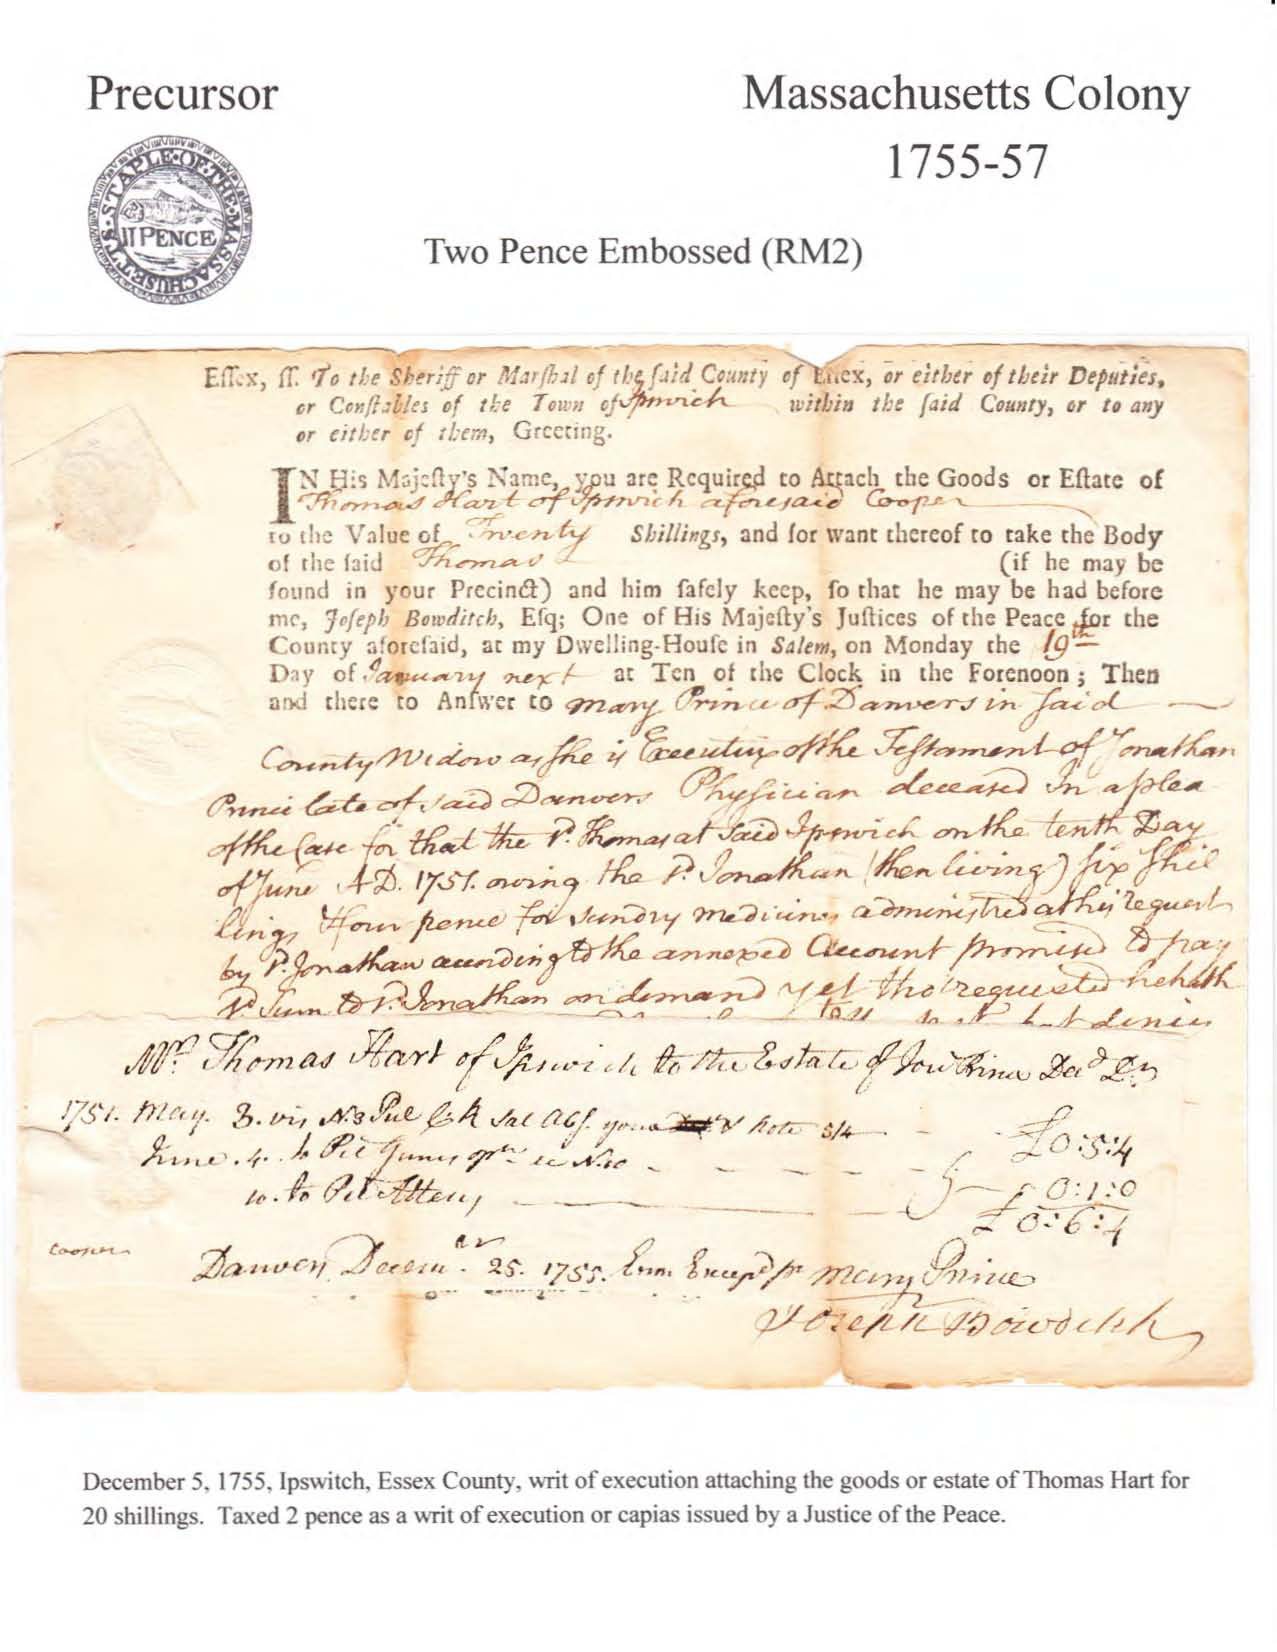 Precursor
Massachusetts Colony
1755-57
STAPLE·OF·THE·MASSACHUSETTS·
II PENCE
Two Pence Embossed (RM2)
Eſſex, ſſ. To the Sheriff or Marſhal of the ſaid County of Eſſex, or either of their Deputies,
or Conſtables of the Town of Ipswich within the ſaid County, or to any
or either of them, Greeting.
IN His Majeſty's Name, you are Required to Attach the Goods or Eſtate of
Thomas Hart of Ipswich aforesaid Cooper
to the Value of Twenty Shillings, and for want thereof to take the Body
of the ſaid Thomas (if he may be
found in your Precinct) and him ſafely keep, ſo that he may be had before
me, Joſeph Bowditch, Eſq; One of His Majeſty's Juſtices of the Peace for the
County aforeſaid, at my Dwelling-Houſe in Salem, on Monday the 19th
Day of January next at Ten of the Clock in the Forenoon; Then
and there to Anſwer to Mary Prince of Danvers in ſaid
County Widow as ſhe is Executrix of the Teſtament of Jonathan
Prince late of said Danvers Phyſician deceased In a plea
of the Case for that the sd. Thomas at said Ipswich on the tenth Day
of June A.D. 1751. owing the sd. Jonathan (then living) ſix ſhil
lings & four pence for sundry medicines administred at his request
by sd. Jonathan according to the annexed Account promised to pay
sd. Sum to sd. Jonathan on demand yet tho' requested he hath
denies
Mr. Thomas Hart of Ipswich to the Estate of Jon Prince Decd Dr
1751. May. 3. Sal Abs. 5/4 £0:5:4
June. 4. to
10. to 0:1:0
£ 0:6:4
Cooper
Danvers Decemr. 25. 1755. Errs. Excepd pr Mary Prince
Joseph Bowditch
December 5, 1755, Ipswitch, Essex County, writ of execution attaching the goods or estate of Thomas Hart for
20 shillings. Taxed 2 pence as a writ of execution or capias issued by a Justice of the Peace.